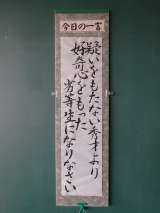 今日の一言
疑いをもたない秀才より
好奇心をもった
劣等生になりなさい